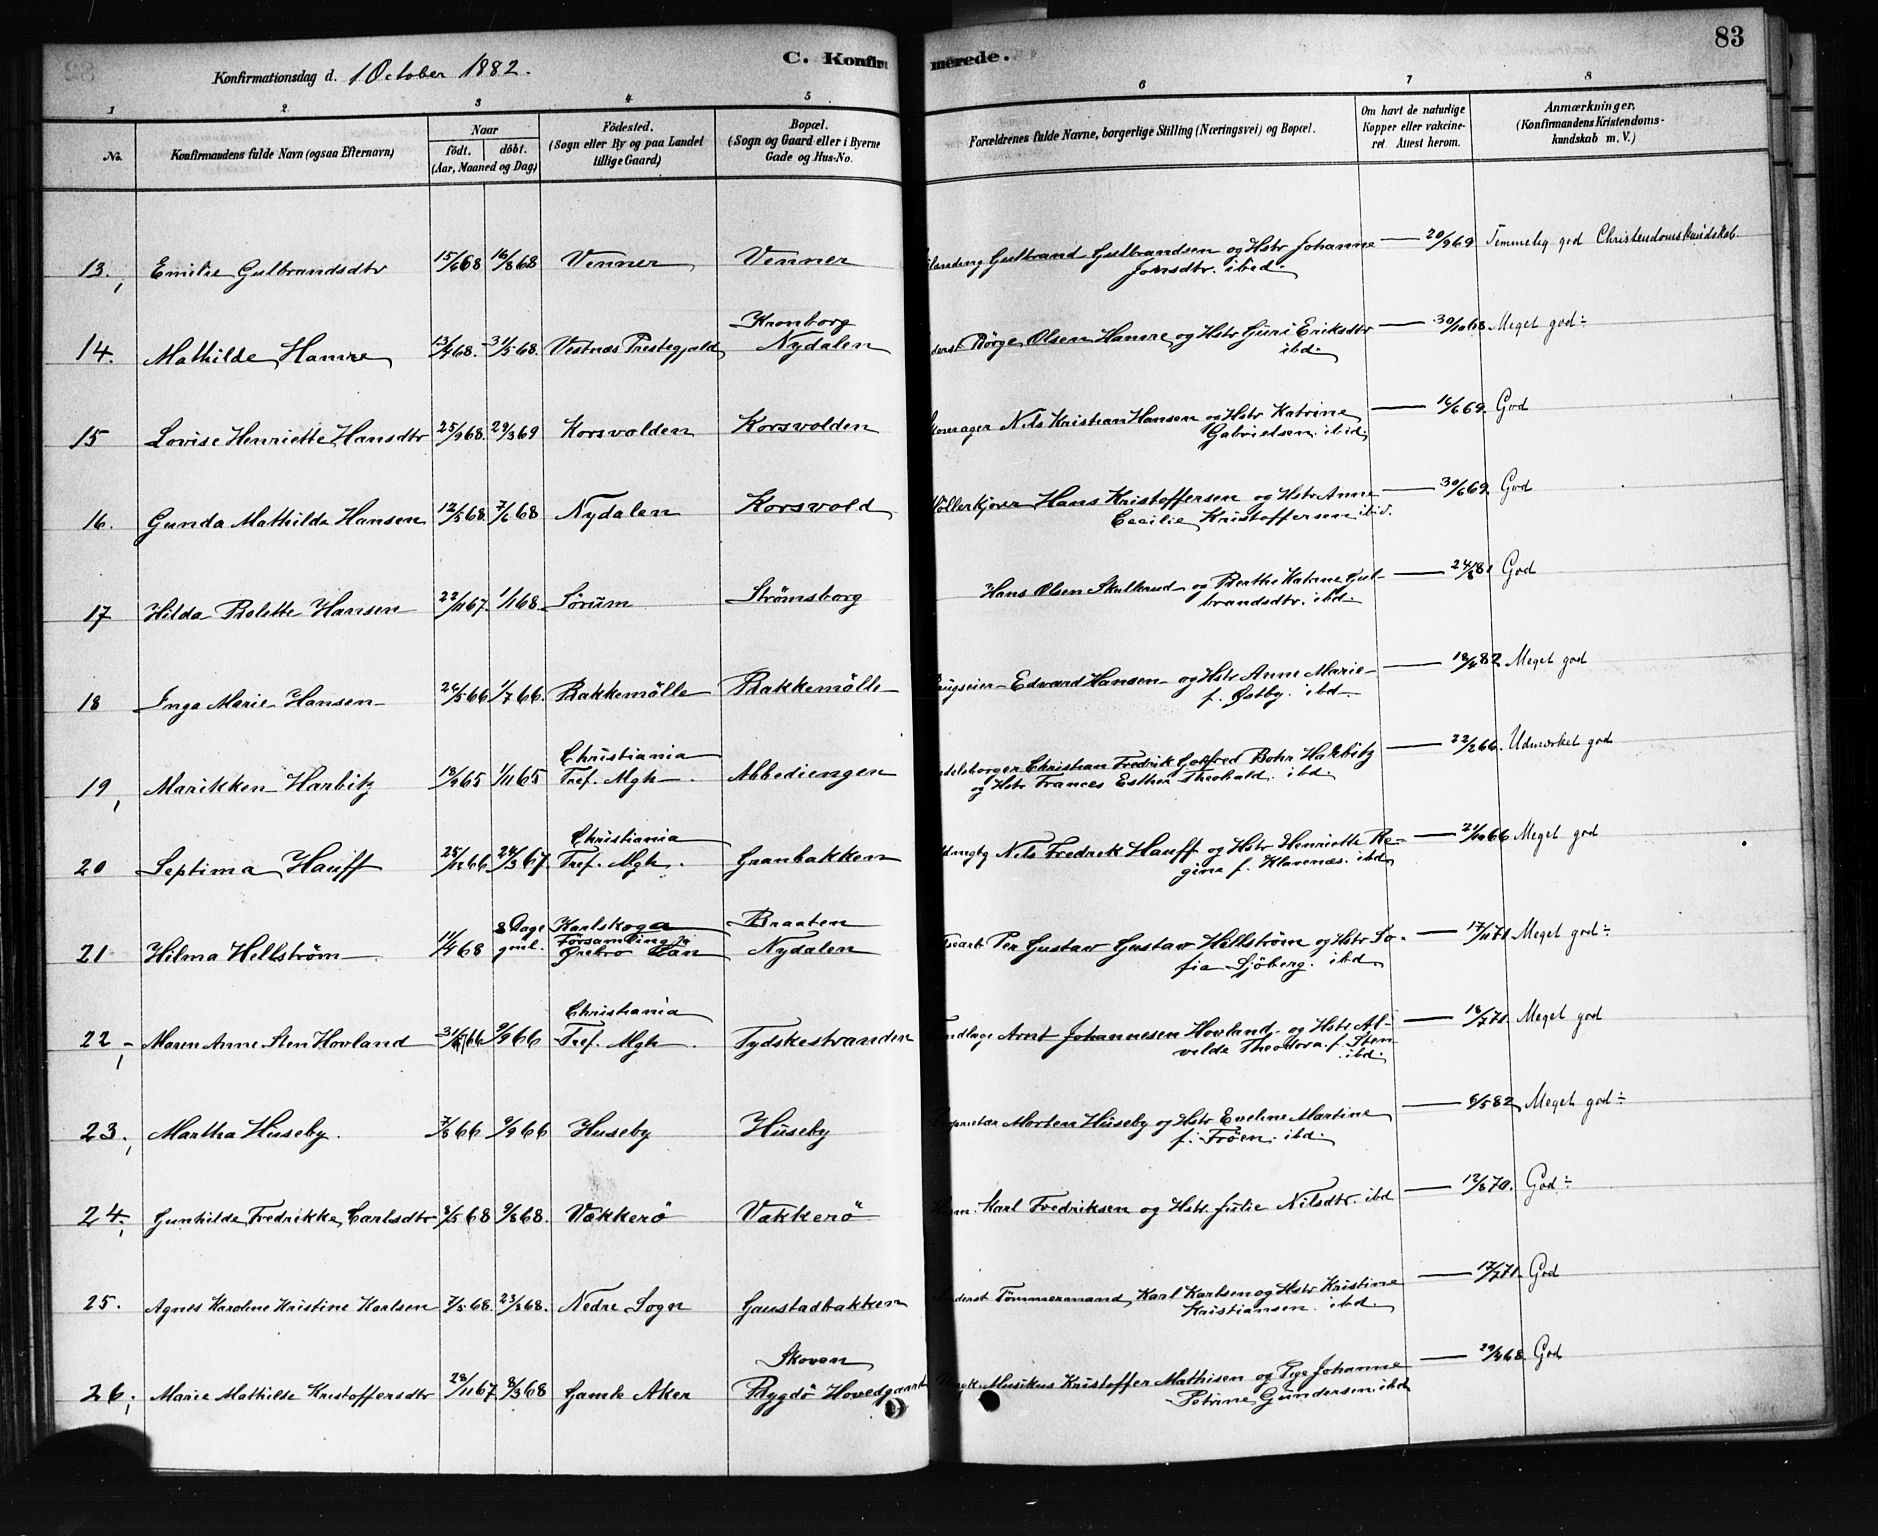 83
Konfirmationsdag d. 1 October 1882.
C. Konfirmerede.
1 2 3 4 5 6 7 8
No.
Konfirmandens fulde Navn (ogsaa Efternavn)
Naar
født. döbt.
(Aar, Maaned og Dag)
Födested.
(Sogn eller By og paa Landet
tillige Gaard)
Bopæl.
(Sogn og Gaard eller i Byerne
Gade og Hus-No.
Forældrenes fulde Navne, borgerlige Stilling (Næringsvei) og Bopæl.
Om havt de naturlige
Kopper eller vakcine-
ret. Attest herom.
Anmærkninger.
(Konfirmandens Kristendoms-
kundskab m. V.)
13, Emilie Gulbrandsdtr 15/6 68 16/8 68 Venner Venner Gulbrand Gulbrandsen og Hstr Johanne — 20/9 69 Temmelig god Christendomskundskab
Jonsdtr. ibid.
Kronborg
14. Mathilde Hamre 13/4 68. 31/5 68. Vestnæs Prestegjeld Nydalen Børge Olsen Hamre og Hstr Guri Eriksdtr — 30/10 68 Meget god ÷
ibd.
15 Lovise Henriette Hansdtr 25/9 68. 29/3 69 Korsvolden Korsvolden Nils Kristian Hansen og Hstr Katrine — 16/6 69. God
Gabrielsen. ibid.
16. Gunda Mathilde Hansen 12/5 68. 7/6 68 Nydalen Korsvold Møllerkjører Hans Kristoffersen og Hstr Anne — 30/6 69. God
Cecilie Kristoffersen ibid.
17 Hilda Bolette Hansen 22/11 67 1/1 68. Sörum Strömsborg Hans Olsen Skulkrud og Berthe Katrine Gul- — 24/8 81 God
brandsdtr. ibd.
18 Inga Marie Hansen 26/5 66 1/7 66. Bakkemölle Bakkemölle Brugseier Edvard Hansen og Hstr Anne Marie — 82 Meget god
f. Østby. ibd.
Christiania
19, Marikken Harbitz 65 1/11 65 Tref. Mgh. Abbediengen Christian Fredrik Gotfred Bohr Harbitz — 22/2 66. Udmærket god
og Hstr Frances Esther Theobald. ibd.
Christiania
20 Septima Hauff 25/12 66 24/3 67. Tref. Mgh. Granbakken Nils Fredrik Hauff og Hstr Henriette Re- — 21/10 66 Meget god
gine f. Klavenæs. ibd
8 Dage Karlskoga Braaten
21 Hilma Hellström 11/4 68 gml. Församling i Nydalen Per Gustav Gustav Hellström og Hstr So- — 17/11 71 Meget god ÷
Örebro Län
fia Sjöberg. ibd.
Christiania
22, Maren Anne Sten Hovland 66 9/9 66 Tref. Mgh. Tydskestranden Arnt Johannesen Hovland og Hstr Al- — 18/7 71. Meget god
velde Theodora f. Sten
ibd.
23, Martha Huseby. 7/8 66 9/9 66 Huseby Huseby Proprietær Morten Huseby og Hstr Eveline Martine — 8/5 82 Meget god ÷
f. Fröen. ibd.
24, Gunhilde Fredrikke Carlsdtr 8/5 68 9/8 68. Vækkerö Vækkerö Karl Fredriksen og Hstr. Julie Nilsdtr. ibd — 12/8 70. God ÷
25. Agnes Karoline Kristine Karlsen 7/5 68. 23/8 68. Nedre Sogn Gaustadbakken Tömmermand Karl Karlsen og Hstr Kristine — 17/7 71. God
Kristiansen. ibd.
Skoven
26, Marie Mathilde Kristoffersdtr 28/11 67 8/3 68 Gamle Aker Bygdö Hovedgaard Musikus Kristoffer Mathisen og Pige Johanne — 68 God
Petrine Gundersen. ibd